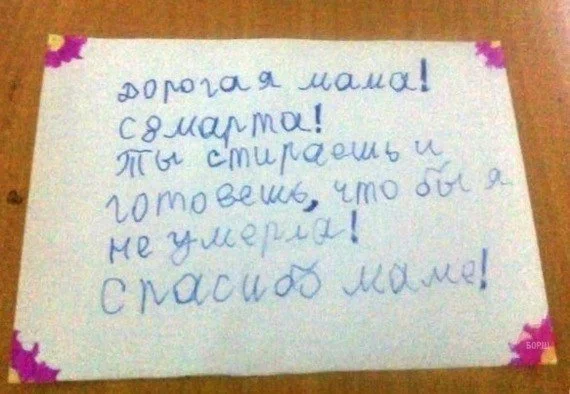 дорогая мама!
С 8 марта!
Ты стираешь и
готовешь, что бы я
не умерла!
Спасибо маме!
БОРЩ